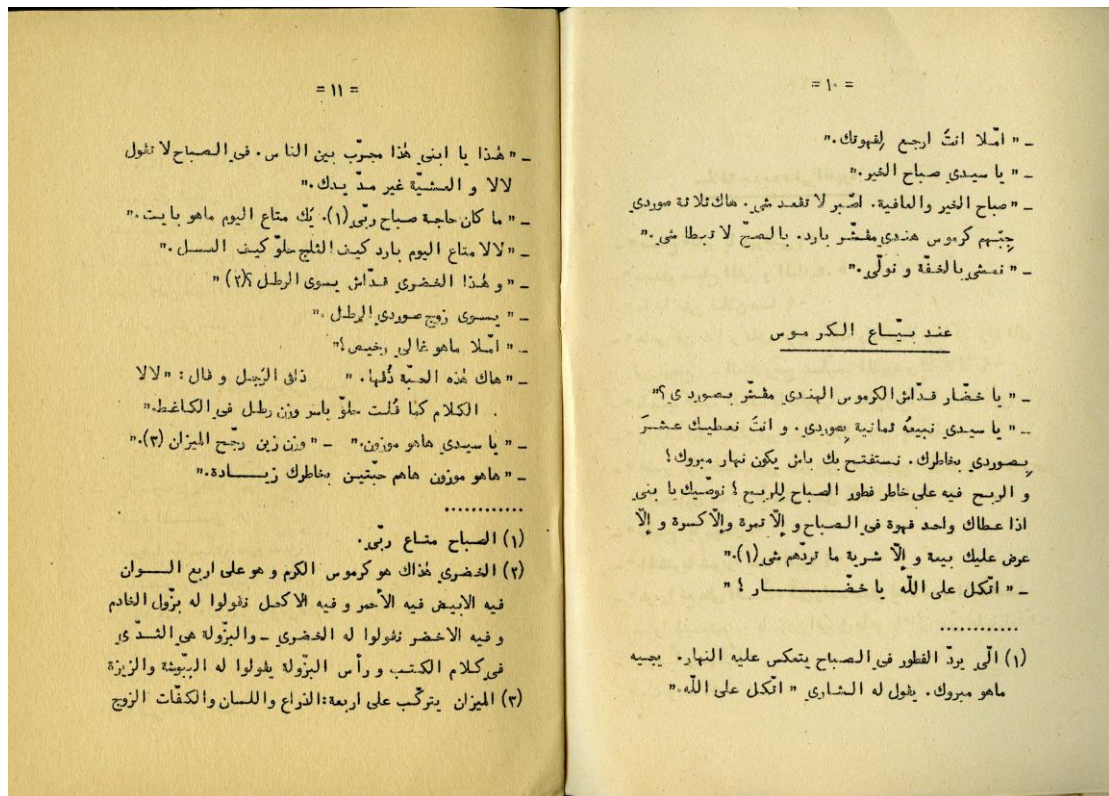 = ١٠ =
ـ « امّلا انتَ ارجع لِڧهوتك.»
ـ « يا سيدي صباح الخير.»
ـ « صباح الخير والعافية. اصّبر لا تڧعد شي. هاك ثلاثة صوردي
جِبّهم كرموس هندي مڧشّر بارد. بالصحّ لا تبطا شي.»
ـ « نمشي بالخفّة و نولّي.»
عند بيّاع الكرموس
ـ « يا خضّار ڧدّاش الكرموس الهندي مڧشّر بصوردي؟»
ـ « يا سيدي نبيعهُ ثمانية بِصوردي. و انتَ نعطيك عشرَ
بِصوردي بخاطرك. نستفتح بك باش يكون نهار مبروك!
و الربح فيه على خاطر فطور الصباح لِلربح! نوصّيك يا بني
اذا عطاك واحد ڧهوة في الصباح و إلّا تمرة وإلّا كسرة و إلّا
عرض عليك بيعة و إلّا شرية ما تردّهم شي (١).»
ـ « اتّكل على اللّه يا خضّـــــار ! »
............
(١) الّي يردّ الفطور في الصباح يتعكس عليه النهار. يجيه
ماهو مبروك. يڧول له الشاري « اتّكل على اللّه.»
= ١١ =
ـ « هٰذا يا ابني هٰذا مجرّب بين الناس. في الصباح لا تڧول
لالا و العشيّة غير مدّ يدك.»
ـ « ما كان حاجة صباح ربّي (١). يَك متاع اليوم ماهو بايت.»
ـ « لالا متاع اليوم بارد كيف الثلج حلوّ كيف العسل.»
ـ « و هٰذا الخضري ڧدّاش يسوى الرطل ؟(٢) »
ـ « يسوى زوج صوردي الرطل.»
ـ « امّلا ماهو غالي رخيص!»
ـ « هاك هٰذه الحبّة ذُڧها.» ذاڧ الرّجل و ڧال : « لالا
الكلام كما ڧُلت حلوّ ياسر وزن رطل في الكاغط.»
ـ « يا سيدي هاهو موزون.» ـ « وزن زين رجّح الميزان (٣).»
ـ « هاهو موزون هاهم حبّتين بخاطرك زيـــادة.»
............
(١) الصباح متاع ربّي.
(٢) الخضري هٰذاك هو كرموس الكرم و هو على اربع الـــوان
فيه الابيض فيه الأحمر و فيه الاكحل نڧولوا له بزّول الخادم
و فيه الاخضر نڧولوا له الخضري ـ والبزّولة هي الثدّي
في كلام الكتب و رأس البزّولة يڧولوا له الببّوشة والزيزة
(٣) الميزان يتركّب على اربعة: الذراع واللسان والكفّات الزوج